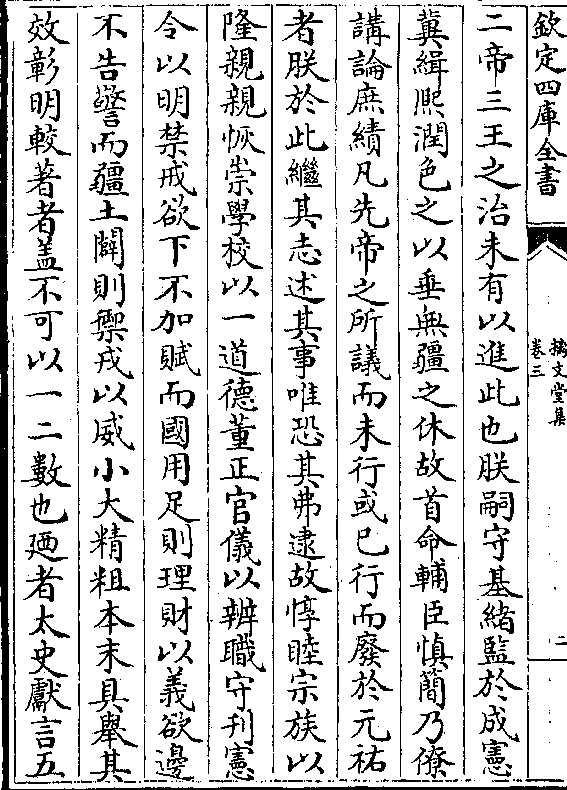 欽定四庫全書
摛文堂集
卷三
二
二帝三王之治未有以進此也朕嗣守基緒監於成憲
冀緝熙潤色之以垂無疆之休故首命輔臣慎簡乃僚
講論庶績凡先帝之所議而未行或已行而廢於元祐
者朕於此繼其志述其事唯恐其弗逮故惇睦宗族以
隆親親恢崇學校以一道德董正官儀以辨職守刊憲
令以明禁戒欲下不加賦而國用足則理財以義欲邊
不告警而疆土闢則禦戎以威小大精粗本末具舉其
效彰明較著者盖不可以一二數也廼者太史獻言五